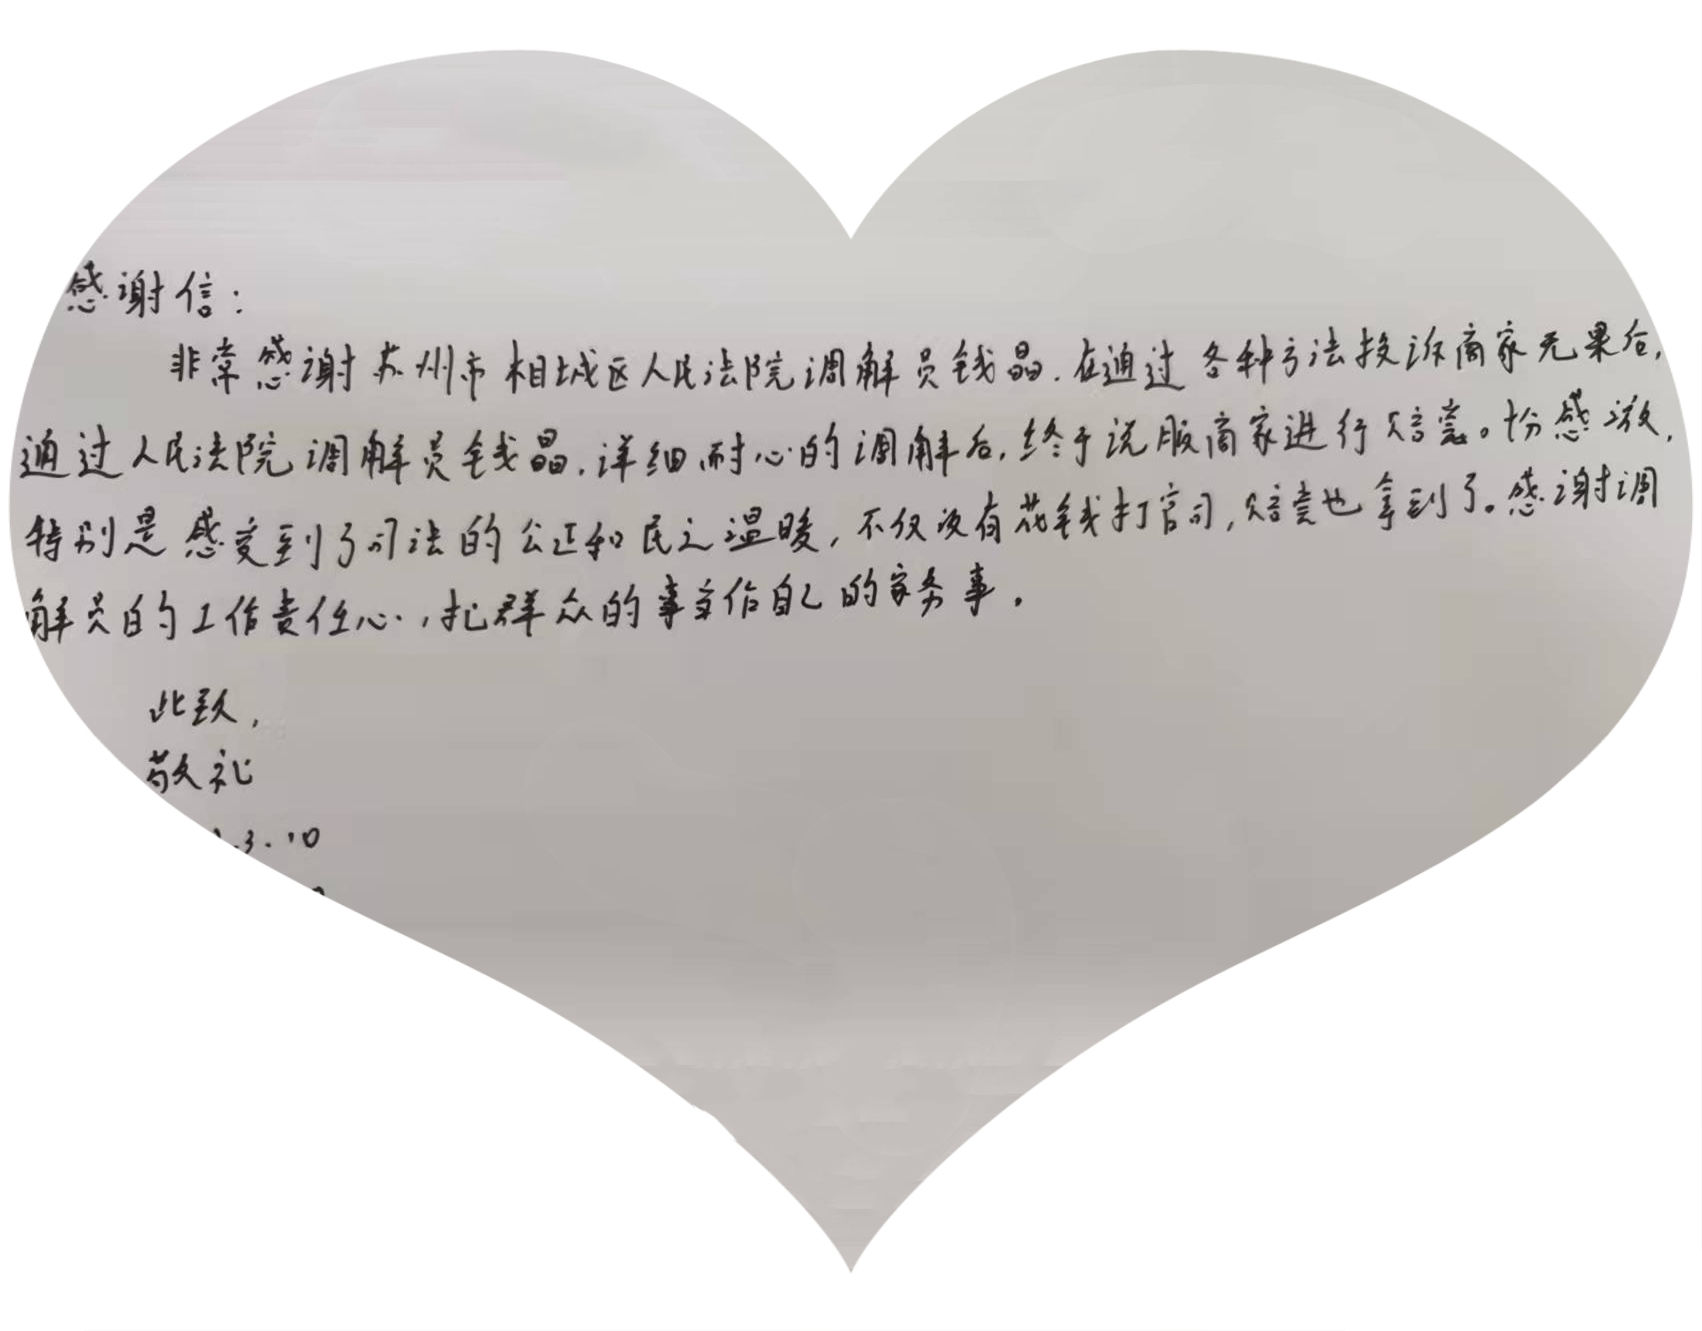 感谢信：
非常感谢苏州市相城区人民法院调解员钱晶.在通过各种方法投诉商家无果后,
通过人民法院调解员钱晶,详细耐心的调解后,终于说服商家进行赔偿。十分感激,
特别是感受到了司法的公正和民之温暖,不仅没有花钱打官司,赔偿也拿到了。感谢调
解员的工作责任心,把群众的事当作自己的家务事.
此致,
敬礼
.3.10